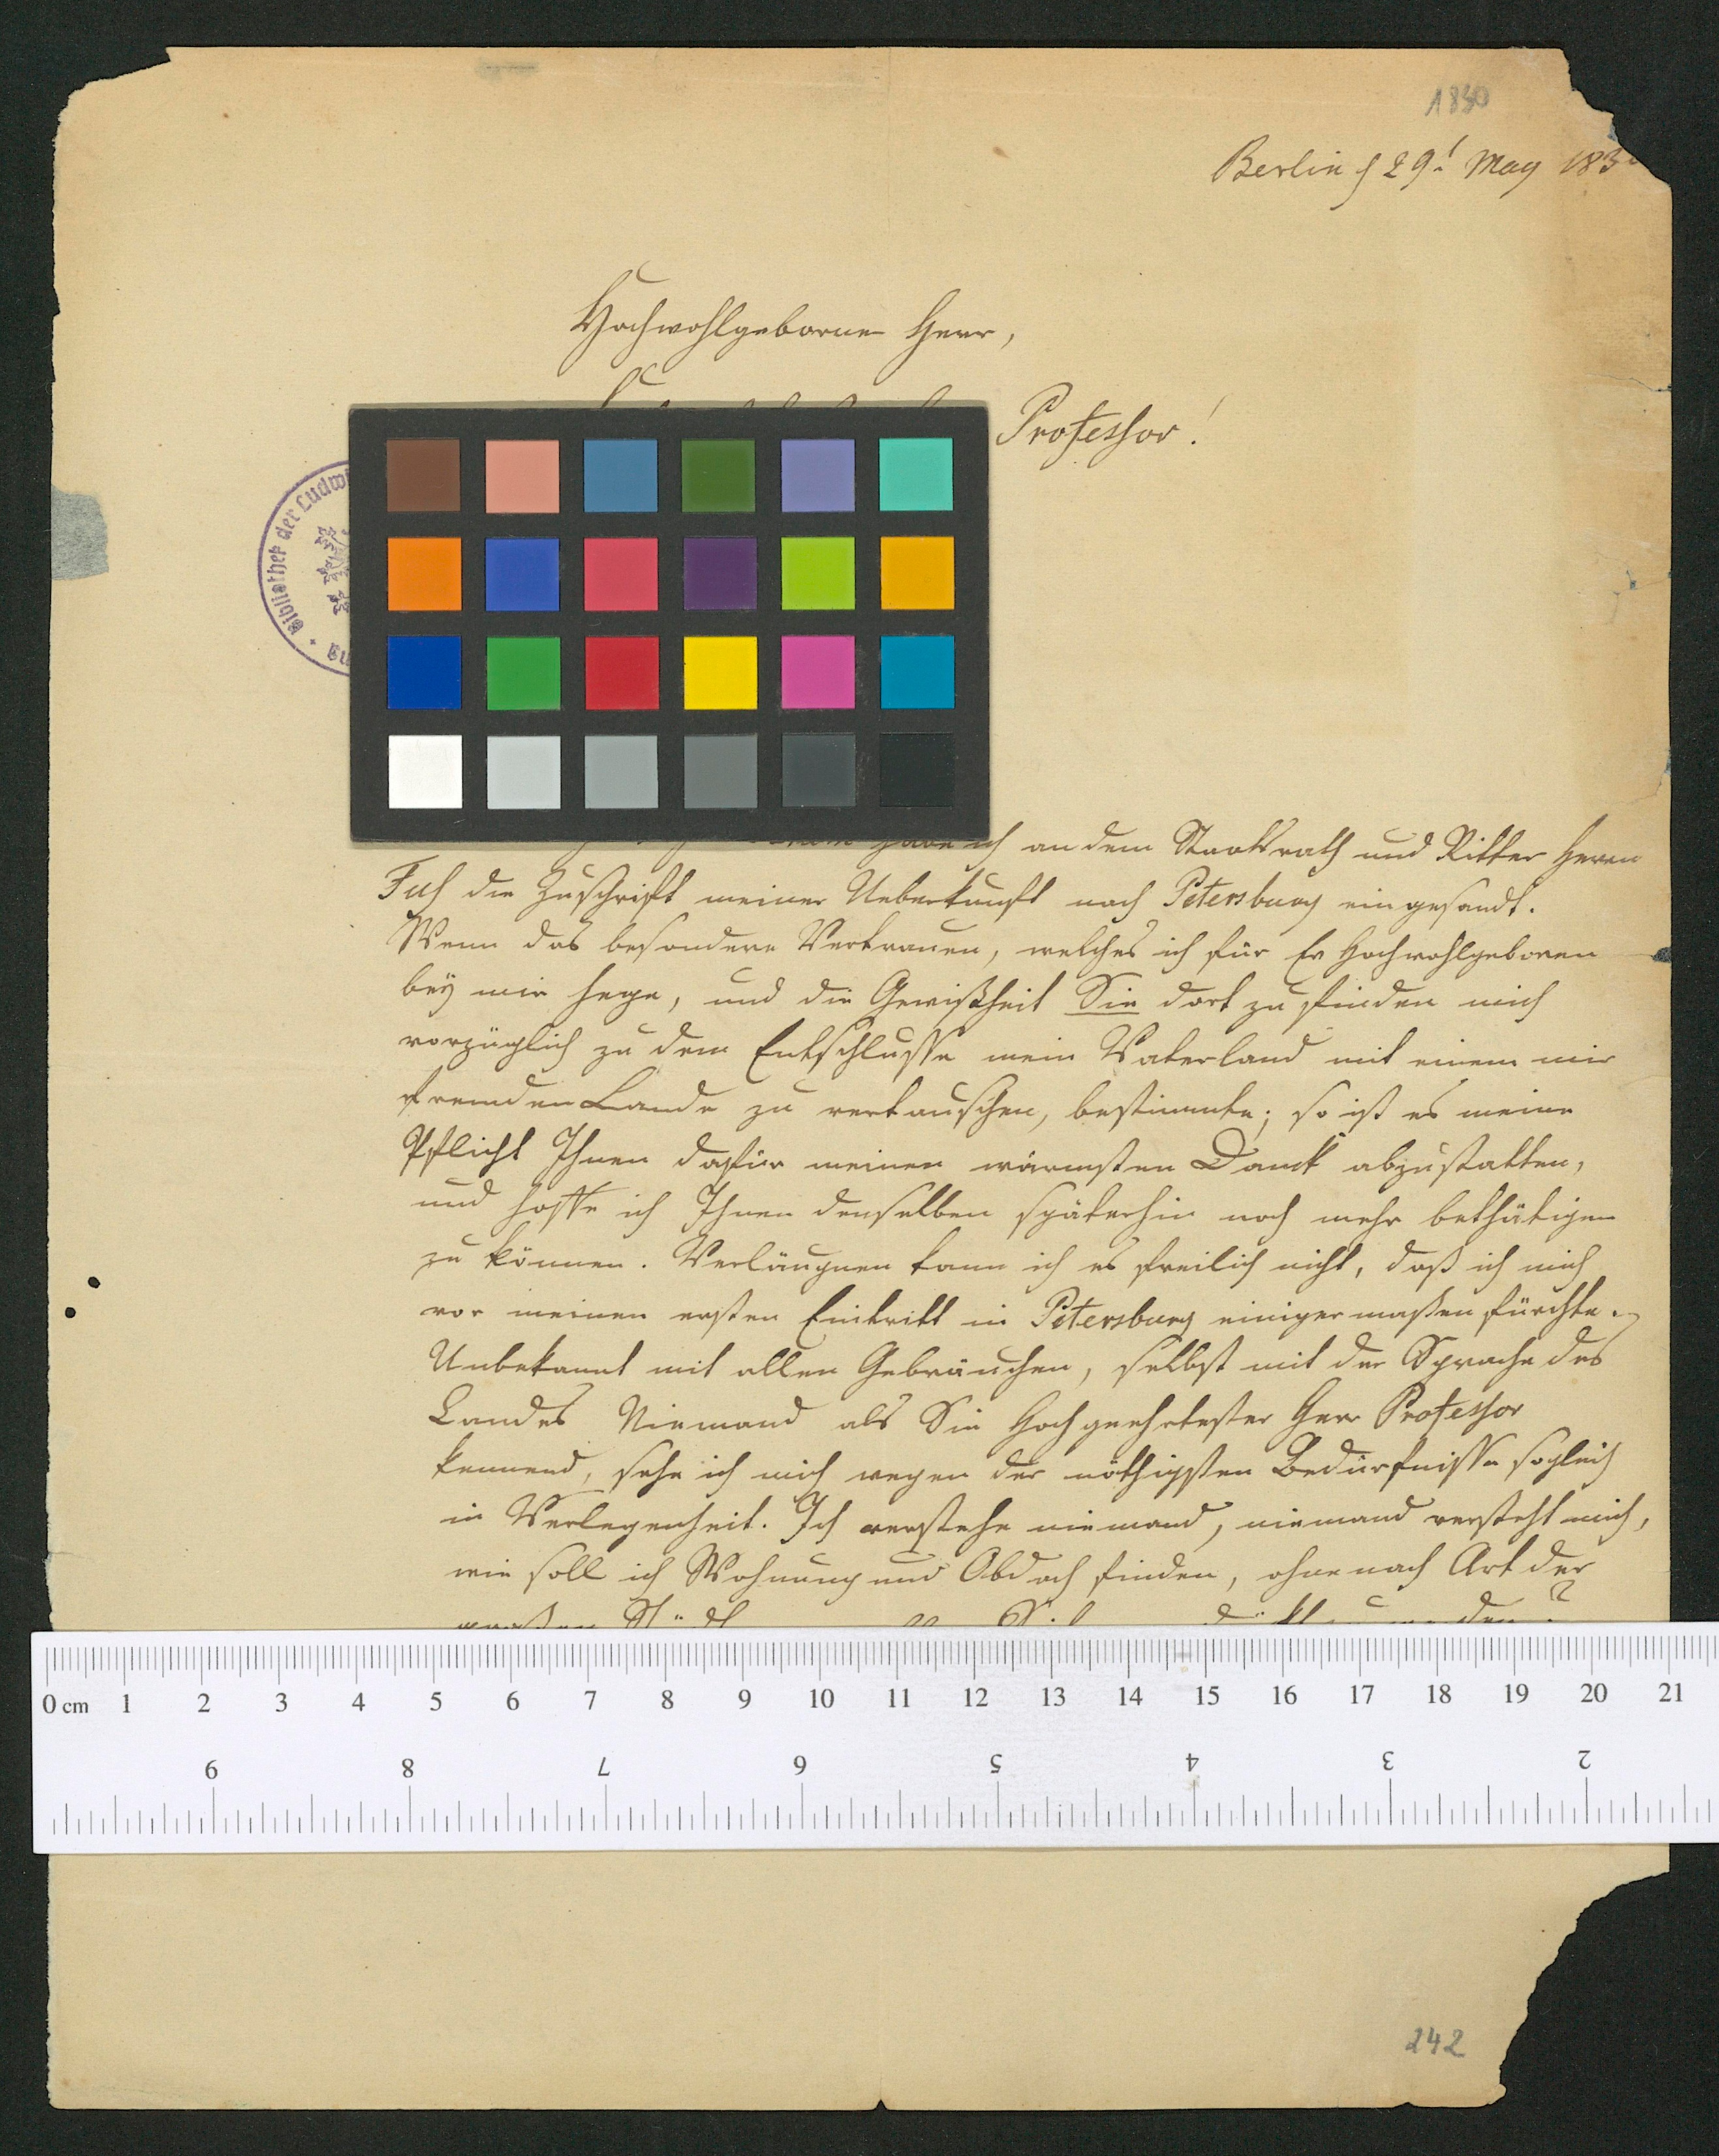 1830
Berlin d 29t May 183
Hochwohlgeborner Herr,
Professor!
Bibliothek der Ludw
habe ich an dem Staatsrath und Ritter Herrn
Fuß die Zuschrift meiner Ueberkunft nach Petersburg eingesandt.
Wenn das besondere Vertrauen, welches ich für Ew Hochwohlgeboren
bey mir hege, und die Gewißheit Sie dort zu finden mich
vorzüglich zu dem Entschlusse mein Vaterland mit einem mir
fremden Lande zu vertauschen, bestimmte; so ist es meine
Pflicht Ihnen dafür meinen wärmsten Danck abzustatten,
und hoffe ich Ihnen denselben späterhin noch mehr bethätigen
zu können. Verläugnen kann ich es freilich nicht, daß ich mich
vor meinen ersten Eintritt in Petersburg einigermaßen fürchte.
Unbekannt mit allen Gebräuchen, selbst mit der Sprache des
Landes Niemand als Sie Hochgeehrtester Herr Professor
kennend, sehe ich mich wegen der nöthigsten Bedürfnisse sogleich
in Verlegenheit. Ich verstehe niemand, niemand versteht mich,
wie soll ich Wohnung und Obdach finden, ohne nach Art der
0 cm 1 2 3 4 5 6 7 8 9 10 11 12 13 14 15 16 17 18 19 20 21
9 8 7 6 5 4 3 2
242